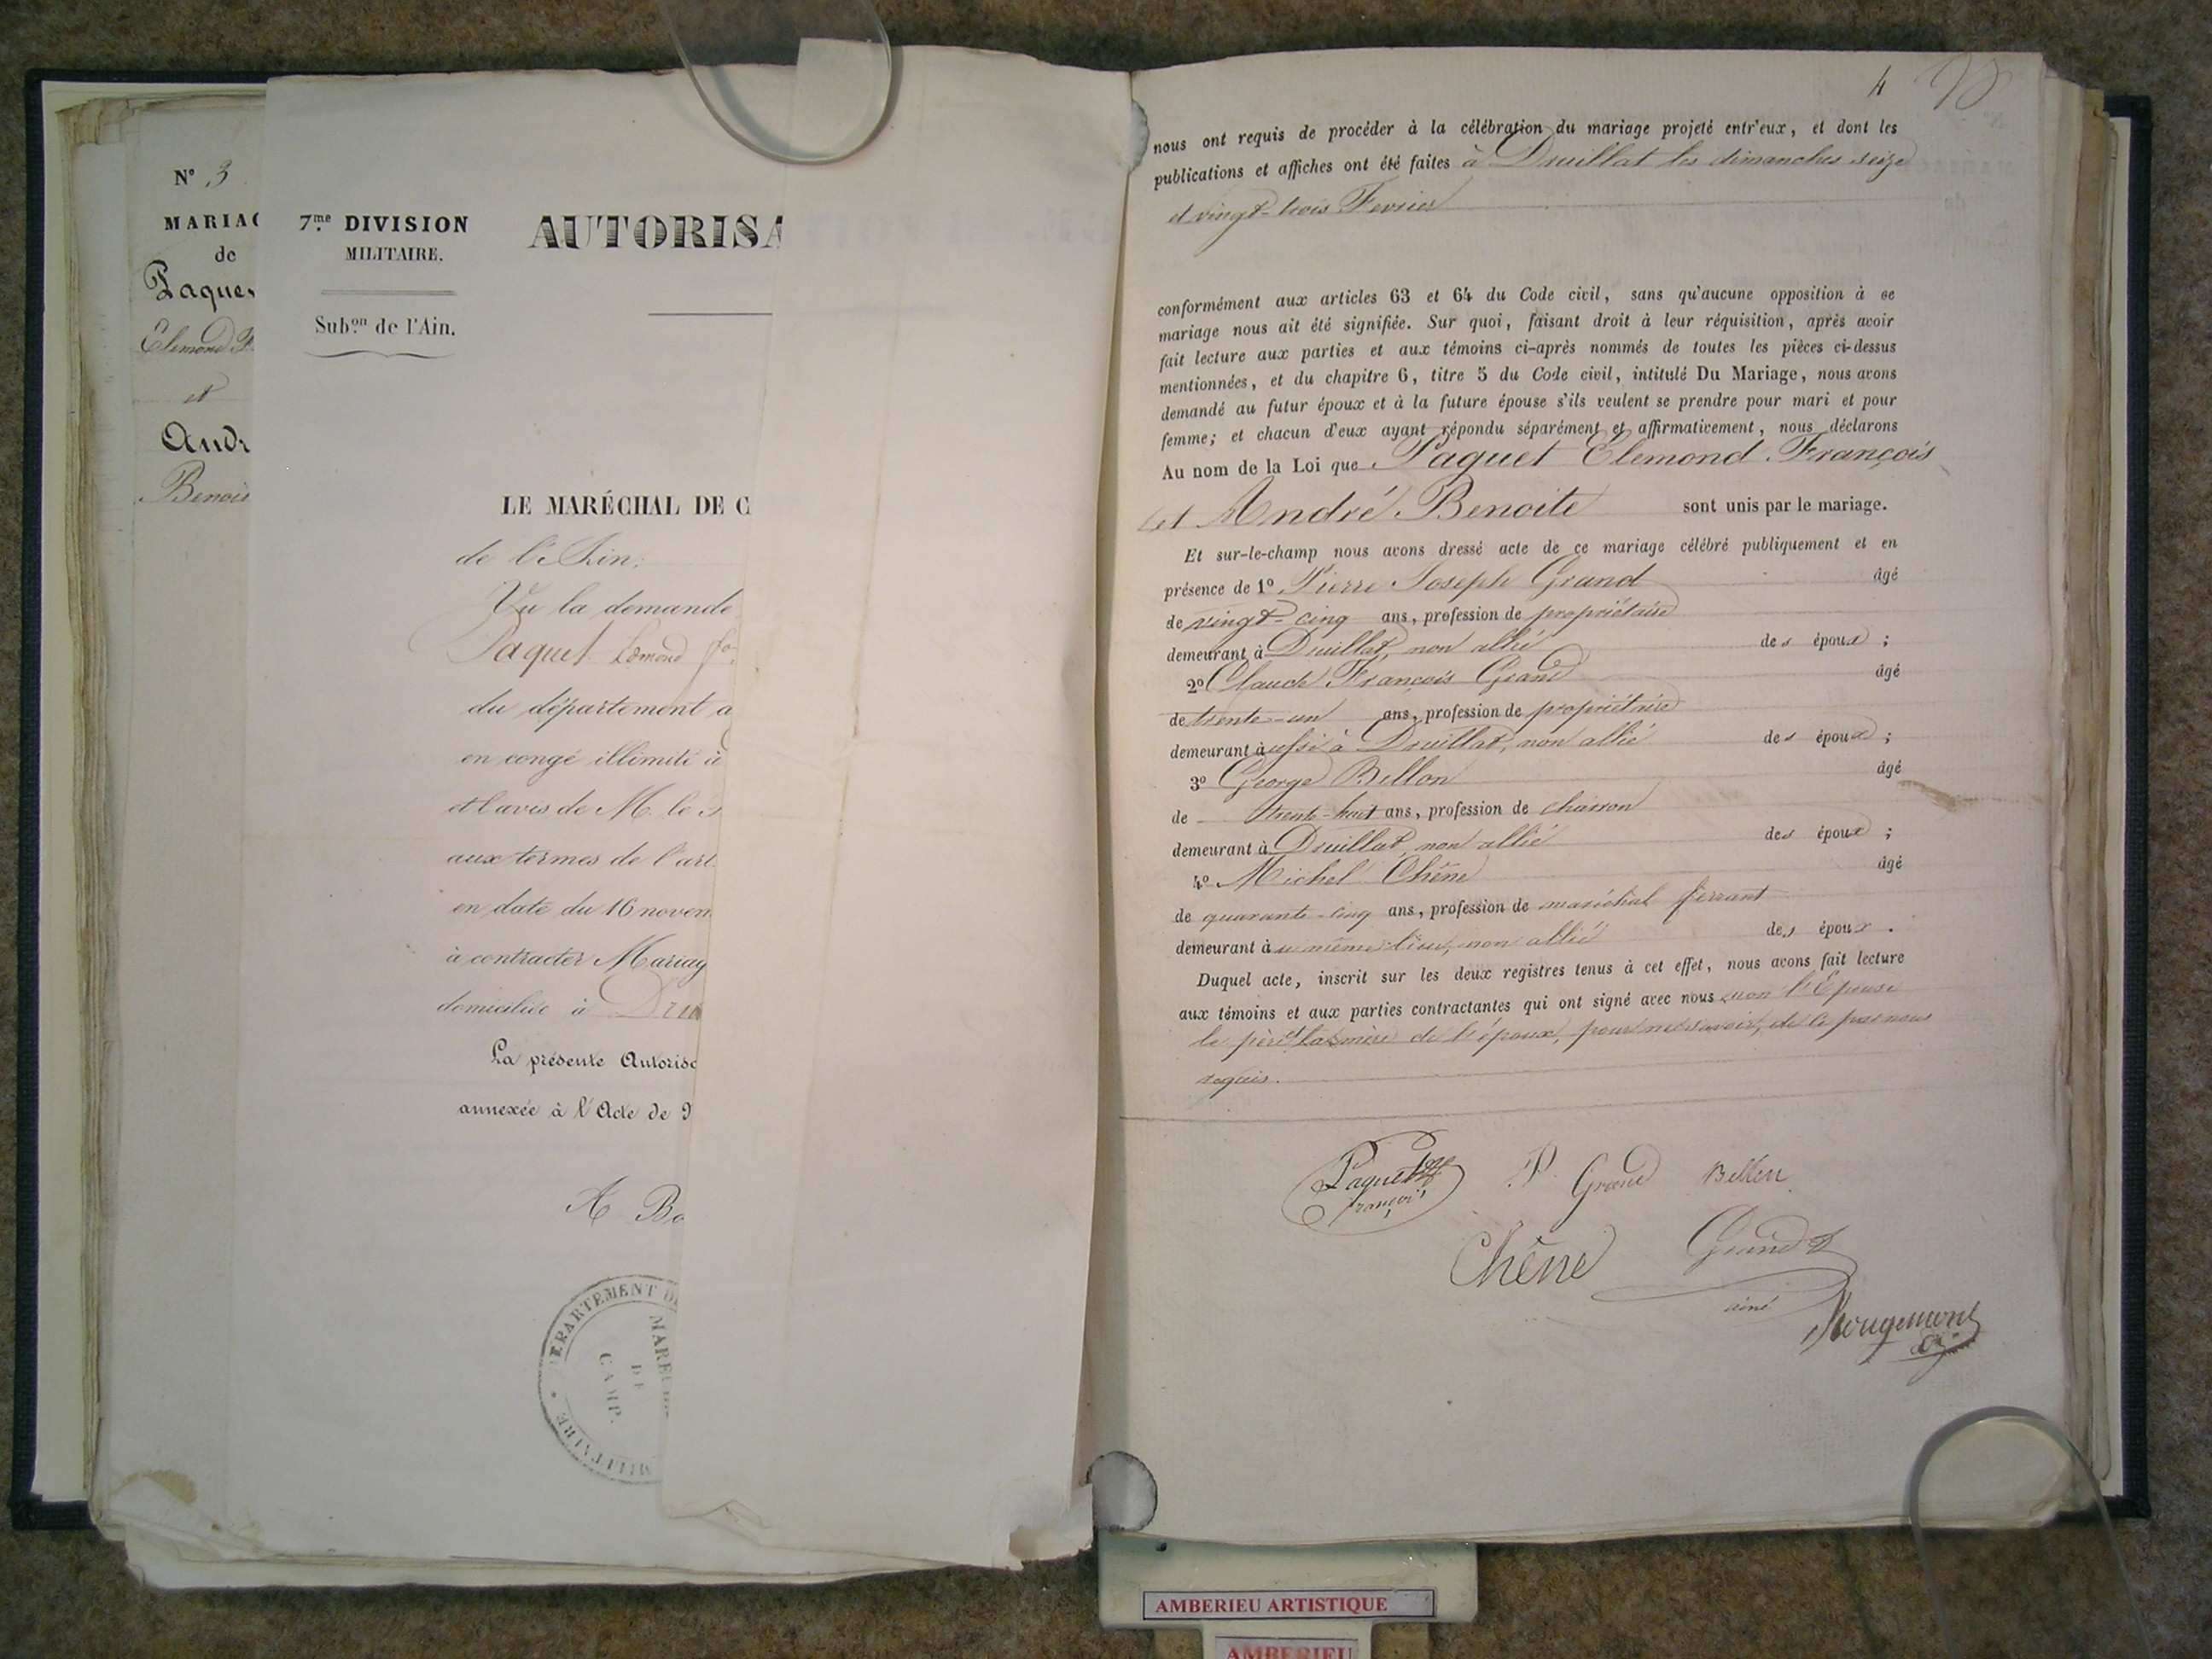 N° 3
MARIAG
de
Paquet
Elemond F
et
Andr
Benoi
7me DIVISION
MILITAIRE.
Subon de l'Ain.
AUTORISA
LE MARÉCHAL DE C
de l'Ain;
Vu la demande
Paquet Edmond fois
du département a
en congé illimité à
et l'avis de M. le
aux termes de l'art
en date du 16 novem
à contracter Mariag
domiciliée à Dru
La présente Autorisa
annexée à l'Acte de
A Bo
DÉPARTEMENT DE
MARÉCHAL
DE
CAMP.
MILITAIRE
4
nous ont requis de procéder à la célébration du mariage projeté entr'eux, et dont les
publications et affiches ont été faites à Druillat les dimanches seize
et vingt-trois Fevrier
conformément aux articles 63 et 64 du Code civil, sans qu'aucune opposition à ce
mariage nous ait été signifiée. Sur quoi, faisant droit à leur réquisition, après avoir
fait lecture aux parties et aux témoins ci-après nommés de toutes les pièces ci-dessus
mentionnées, et du chapitre 6, titre 5 du Code civil, intitulé Du Mariage, nous avons
demandé au futur époux et à la future épouse s'ils veulent se prendre pour mari et pour
femme; et chacun d'eux ayant répondu séparément et affirmativement, nous déclarons
Au nom de la Loi que Paquet Elemond François
et André Benoite sont unis par le mariage.
Et sur-le-champ nous avons dressé acte de ce mariage célébré publiquement et en
présence de 1° Pierre Joseph Grand âgé
de vingt-cinq ans, profession de propriétaire
demeurant à Druillat, non allié des époux;
2° Claude François Grand âgé
de trente-un ans, profession de propriétaire
demeurant aussi à Druillat, non allié des époux;
3° George Billon âgé
de trente-huit ans, profession de charron
demeurant à Druillat, non allié des époux;
4° Michel Chêne âgé
de quarante-cinq ans, profession de maréchal ferrant
demeurant au même lieu, non allié des époux.
Duquel acte, inscrit sur les deux registres tenus à cet effet, nous avons fait lecture
aux témoins et aux parties contractantes qui ont signé avec nous non l'Epouse
le père et la mère de l'époux, pour ne savoir, de ce par nous
requis.
Paquet
françois
P. Grand
Billon
Chêne
Grand
ainé
Rougemont
AMBERIEU ARTISTIQUE
AMBERIEU